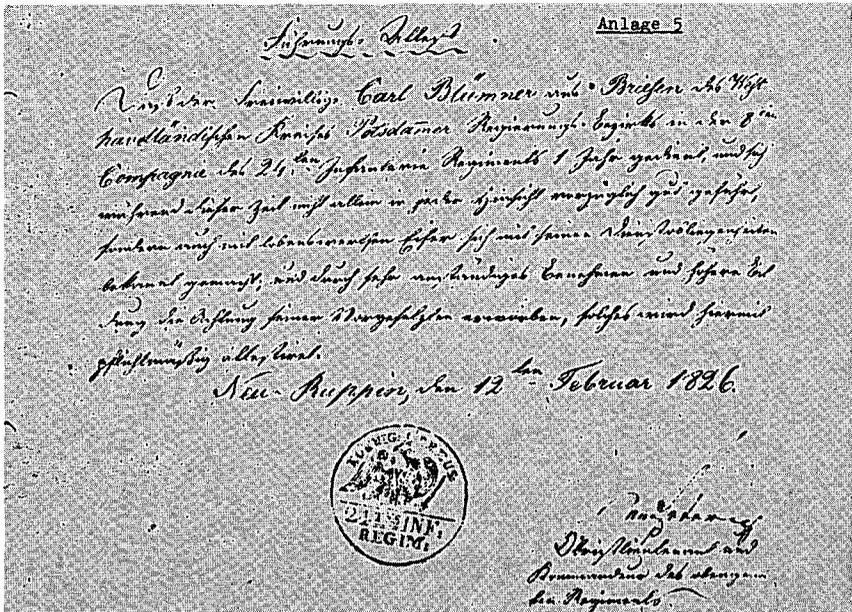 Anlage 5
Führungs-Attest
Daß der Freiwillige Carl Blümner aus Briesen des West
havelländischen Kreises Potsdamer Regierungs-Bezirks in der 8ten
Compagnie des 24ten Infanterie Regiments 1 Jahr gedient, und sich
während dieser Zeit nicht allein in jeder Hinsicht vorzüglich gut geführt,
sondern auch mit lobenswerthen Eifer sich mit seinen Dienstobliegenheiten
bekannt gemacht, und durch sehr anständiges Benehmen und höhere Bil
dung die Achtung seiner Vorgesetzten erworben, solches wird hiermit
pflichtmäßig attestiret.
Neu-Ruppin, den 12ten Februar 1826.
KOENIGL. PREUS.
24tes INF.
REGIM.
Obristlieutenant und
Kommandeur des obengenann
ten Regiments